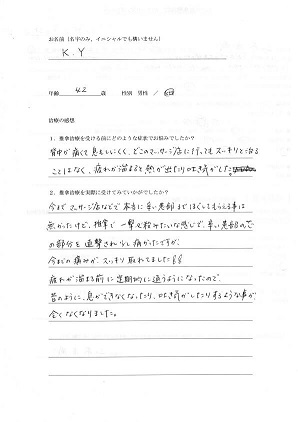 お名前(名字のみ、イニシャルでも構いません)
K.Y
年齢 42 歳 性別 男性 /
治療の感想
1. 推拿治療を受ける前にどのような症状でお悩みでしたか?
背中が痛くて息もしにくく、どこのマッサージ店に行ってもスッキリと治る
ことはなく、疲れが溜まると熱が出たり吐き気がした。
2. 推拿治療を実際に受けてみていかがでしたか?
今までマッサージ店などで本当に辛い患部までほぐしてもらえる事は
無かったけど、推拿で一撃必殺みたいな感じで、辛い患部のその
の部分を直撃され少し痛かったですが、
今までの痛みがスッキリ取れてました
疲れが溜まる前に定期的に通うようになったので、
昔のように、息ができなくなったり、吐き気がしたりするような事が
全くなくなりました。